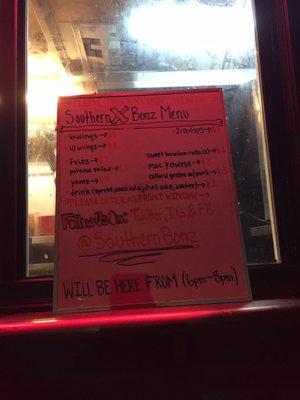 Southern X Bonz Menu
6 wings →
10 wings →
fries →
potato salad →
yams →
drink (sprite, coca cola, diet coke, water) → $2
2 rib tips →
sweet hawiian rolls (2) →
mac n cheese →
collard greens w/ pork →
→ PLEASE ORDER AT FRONT WINDOW ←
Follow Us On: Twitter, IG, & FB
@SouthernBonz
WILL BE HERE FROM (6pm-8pm)